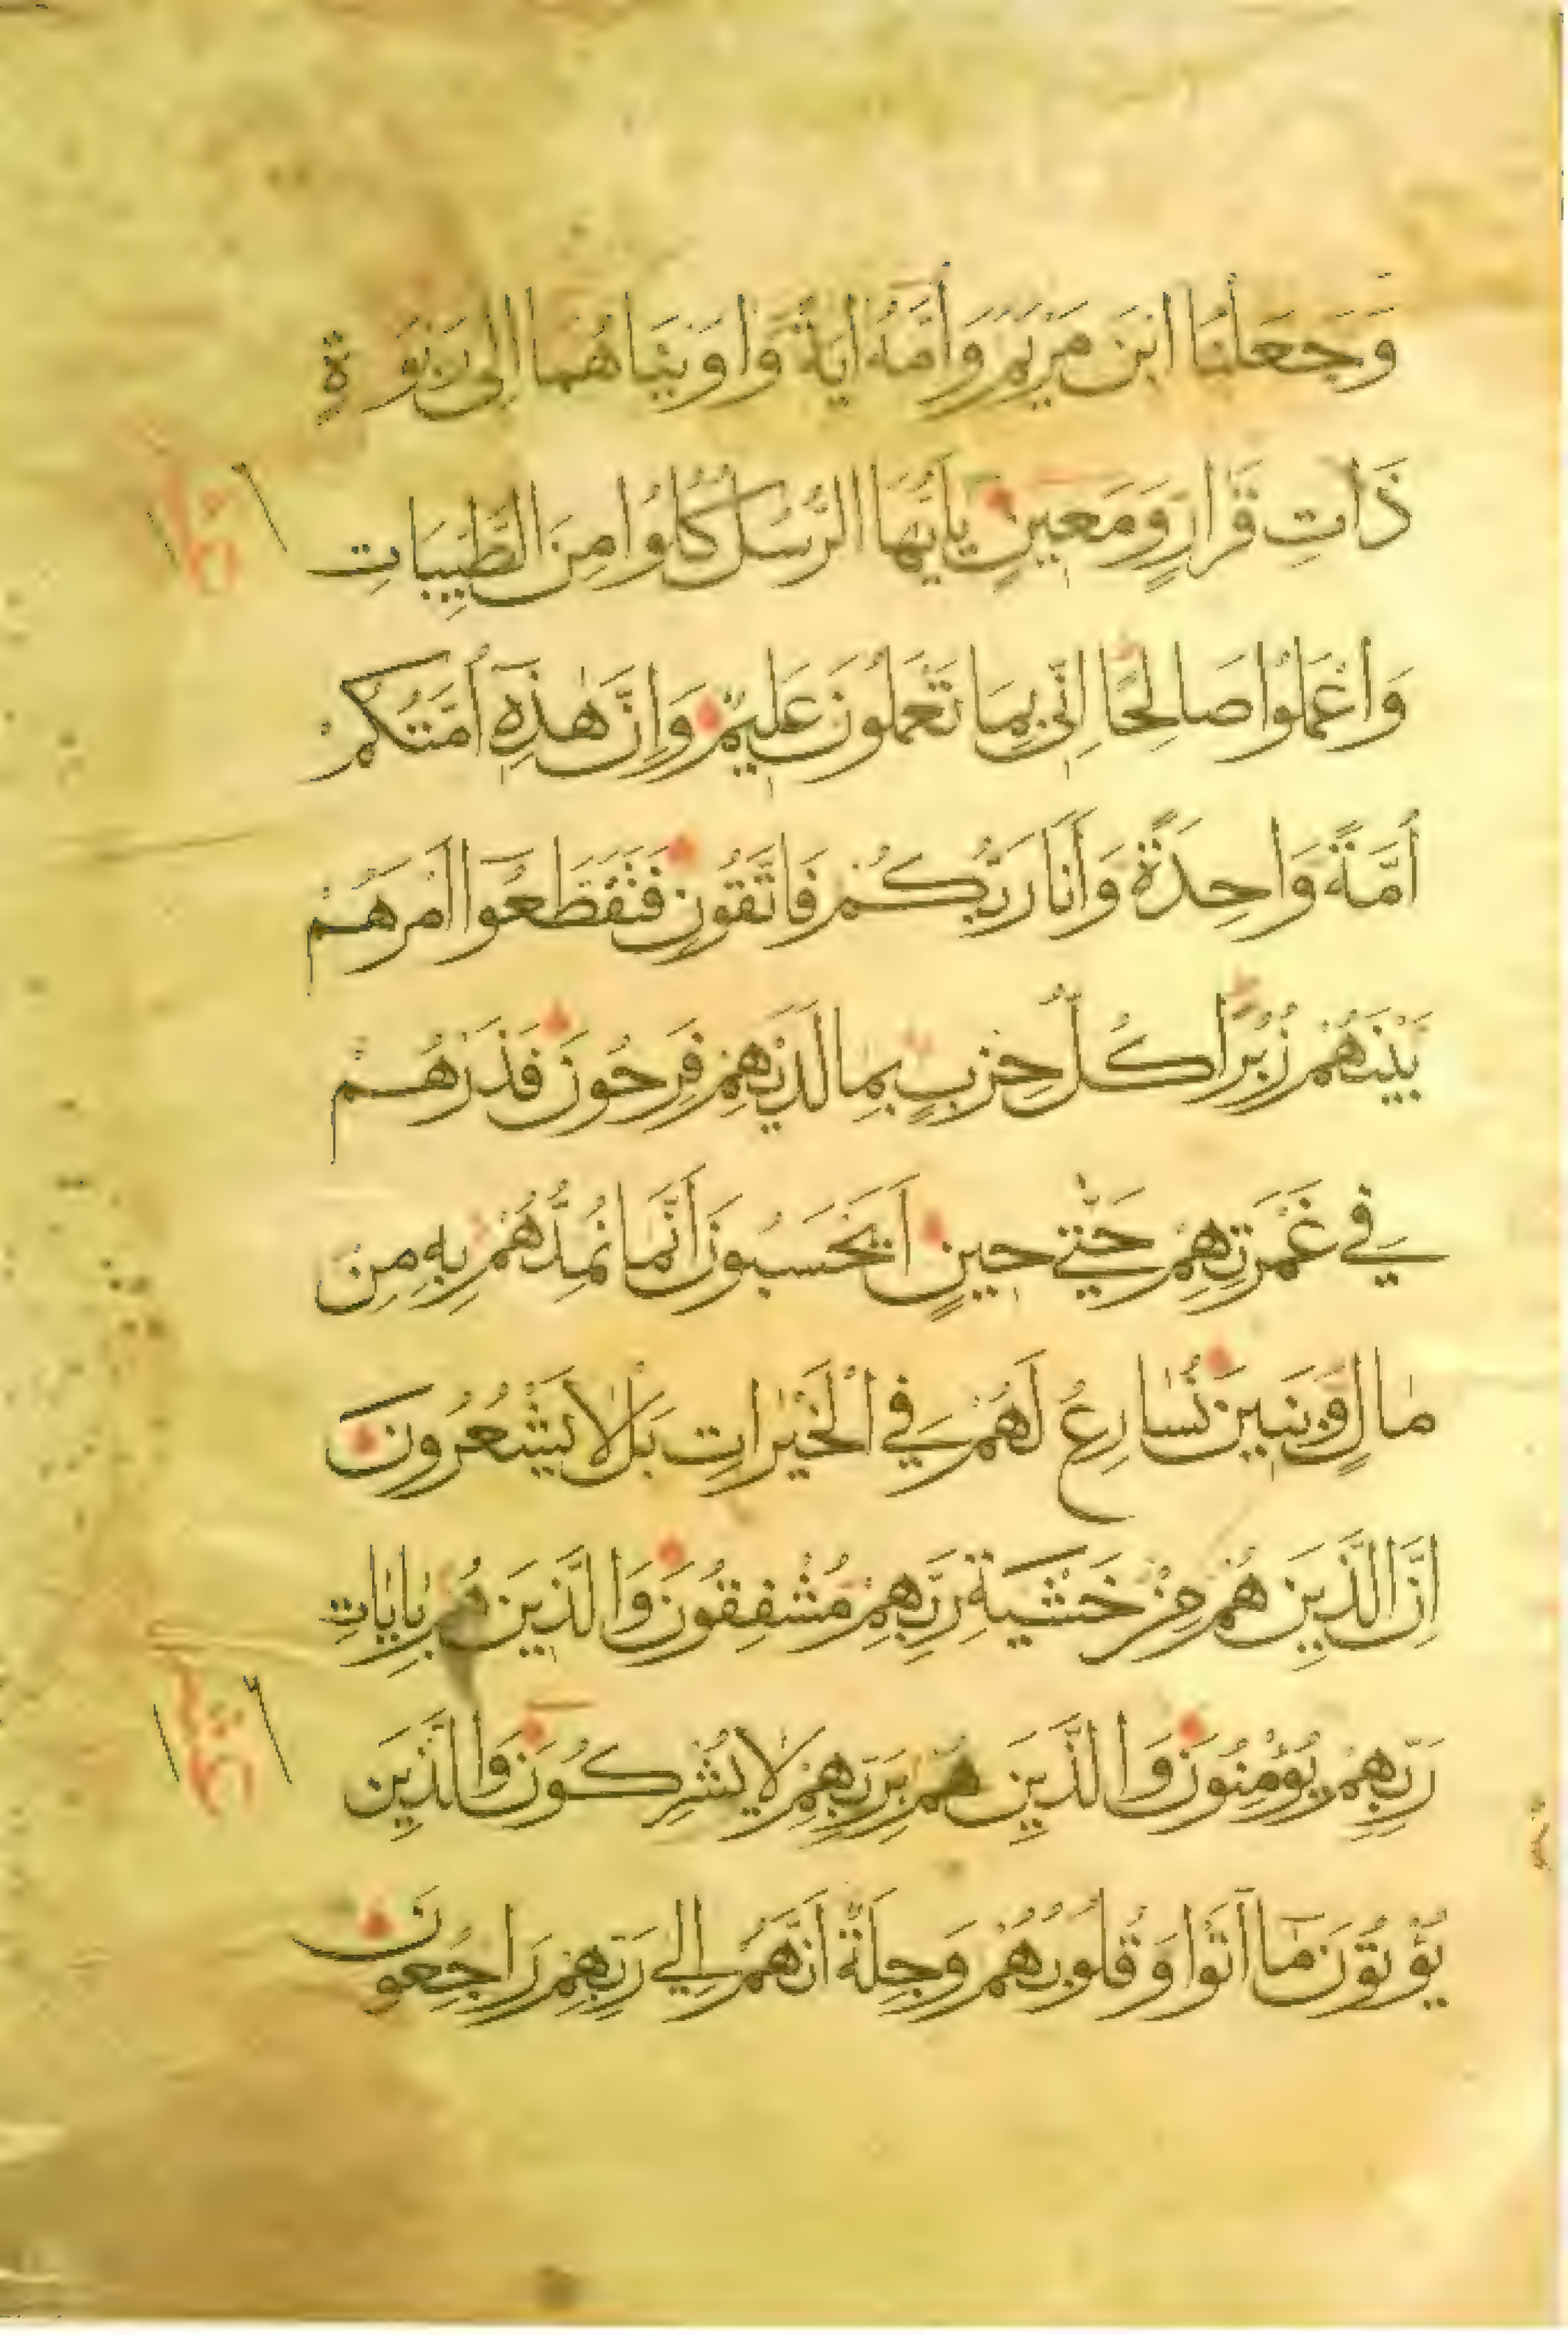 وَجَعَلْنَا ابْنَ مَرْيَمَ وَأُمَّهُ اٰيَةً وَاٰوَيْنَاهُمَا اِلٰى رَبْوَةٍ
ذَاتِ قَرَارٍ وَمَعِينٍ يَاأَيُّهَا الرُّسُلُ كُلُوا مِنَ الطَّيِّبَاتِ
وَاعْمَلُوا صَالِحًا اِنِّي بِمَا تَعْمَلُونَ عَلِيمٌ وَاِنَّ هٰذِهِ اُمَّتُكُمْ
اُمَّةً وَاحِدَةً وَاَنَا رَبُّكُمْ فَاتَّقُونِ فَتَقَطَّعُوا اَمْرَهُمْ
بَيْنَهُمْ زُبُرًا كُلُّ حِزْبٍ بِمَا لَدَيْهِمْ فَرِحُونَ فَذَرْهُمْ
فِي غَمْرَتِهِمْ حَتّٰي حِينٍ اَيَحْسَبُونَ اَنَّمَا نُمِدُّهُمْ بِهِ مِنْ
مَالٍ وَبَنِينَ نُسَارِعُ لَهُمْ فِي الْخَيْرَاتِ بَلْ لَا يَشْعُرُونَ
اِنَّ الَّذِينَ هُمْ مِنْ خَشْيَةِ رَبِّهِمْ مُشْفِقُونَ وَالَّذِينَ هُمْ بِاٰيَاتِ
رَبِّهِمْ يُؤْمِنُونَ وَالَّذِينَ هُمْ بِرَبِّهِمْ لَا يُشْرِكُونَ وَالَّذِينَ
يُؤْتُونَ مَا اٰتَوْا وَقُلُوبُهُمْ وَجِلَةٌ اَنَّهُمْ اِلٰي رَبِّهِمْ رَاجِعُونَ